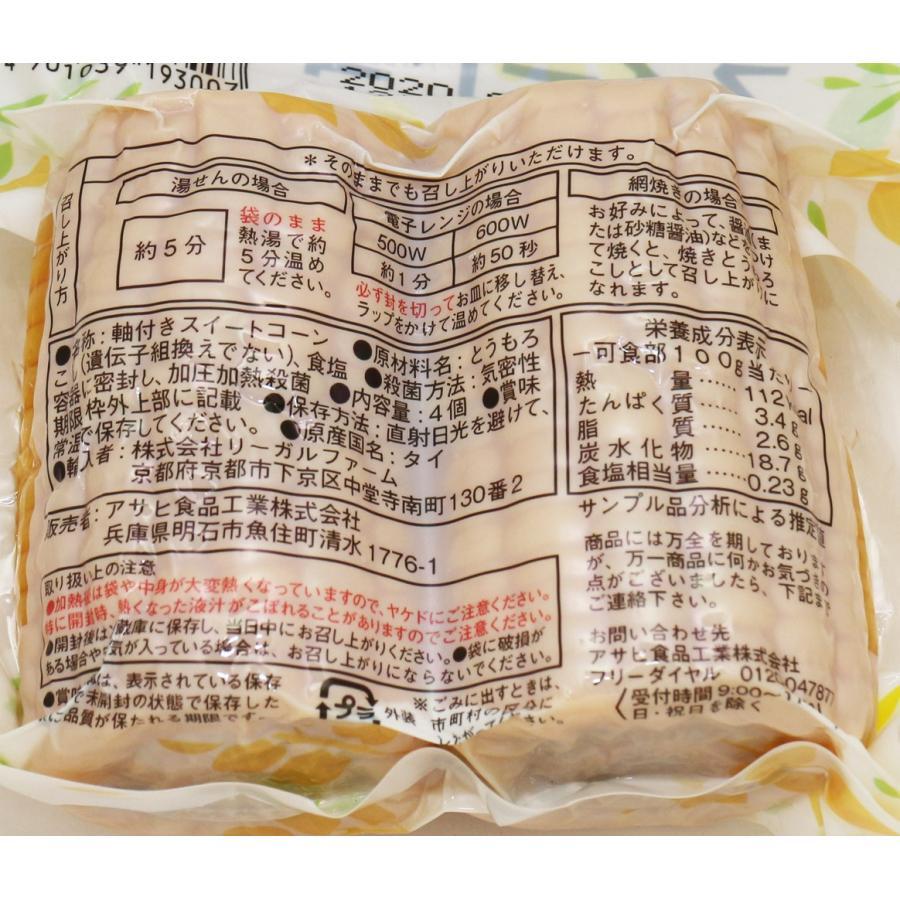 193007
2020
*そのままでも召し上がりいただけます。
召し上がり方
湯せんの場合
約5分
袋のまま
熱湯で約
5分温め
てください。
電子レンジの場合
500W
600W
約1分
約50秒
必ず封を切ってお皿に移し替え、
ラップをかけて温めてください。
網焼きの場合
お好みによって、醤油
たは砂糖醤油)などを
て焼くと、焼きとうもろ
こしとして召し上がり
なれます。
●名称:軸付きスイートコーン ●原材料名:とうもろ
こし(遺伝子組換えでない)、食塩 ●殺菌方法:気密性
容器に密封し、加圧加熱殺菌 ●内容量:4個 ●賞味
期限:枠外上部に記載 ●保存方法:直射日光を避けて、
常温で保存してください。 ●原産国名:タイ
●輸入者:株式会社リーガルファーム
京都府京都市下京区中堂寺南町130番2
販売者:アサヒ食品工業株式会社
兵庫県明石市魚住町清水1776-1
栄養成分表示
可食部100g当たり
熱量……112kcal
たんぱく質……3.4g
脂質……2.6g
炭水化物……18.7g
食塩相当量……0.23g
サンプル品分析による推定値
商品には万全を期しており
が、万一商品に何かお気づきの
点がございましたら、下記まで
ご連絡下さい。
お問い合わせ先
アサヒ食品工業株式会社
フリーダイヤル 0120 047877
受付時間9:00〜
日・祝日を除く
取り扱い上の注意
●加熱後は袋や中身が大変熱くなっていますので、ヤケドにご注意ください。
特に開封時、熱くなった液汁がこぼれることがありますのでご注意ください。
●開封後は冷蔵庫に保存し、当日中にお召し上がりください。●袋に破損が
ある場合や空気が入っている場合は、お召し上がりにならないでください。
は、表示されている保存
で未開封の状態で保存した
に品質が保たれる期限です。
プラ
外装
※ごみに出すときは、
市町村の区分に